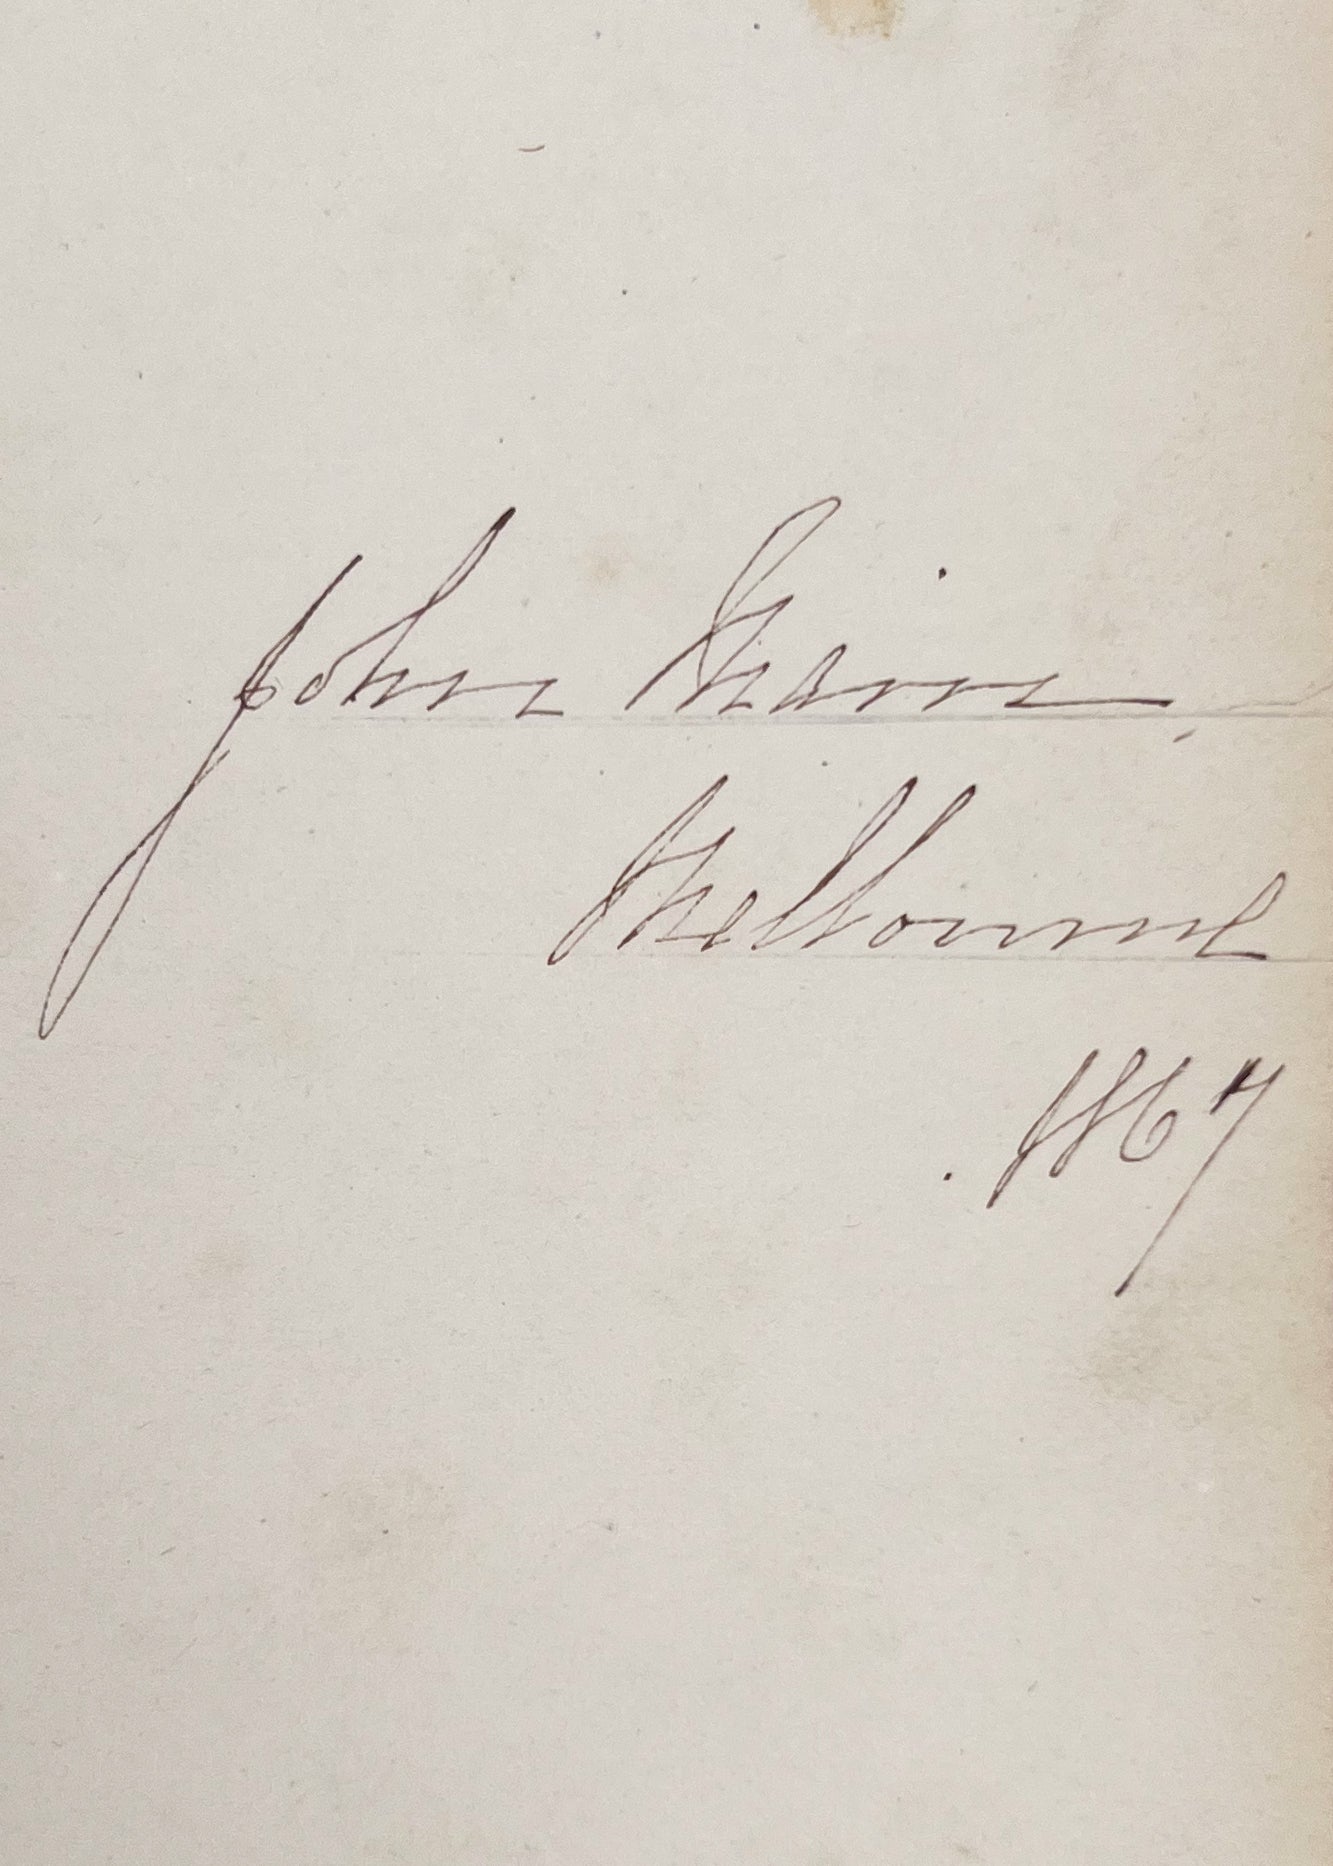 John Mair,
Melbourne
.1867